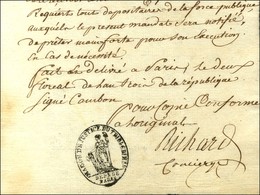 Requiers tout depositaire de la force publique
auxquels le present mandat sera notifié,
de prêter mainforte pour son execution
en cas de nécessité.
fait et délivré a Paris, le deux
floreal de l'an trois de la république
signé Cambon
Pour copie Conforme
a l'original
Richard
Concierge